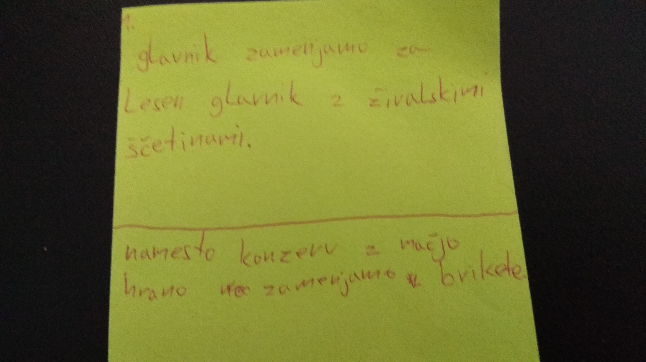 1.
glavnik zamenjamo za
Lesen glavnik z živalskimi
ščetinami.
namesto konzerv z mačjo
hrano zamenjamo brikete